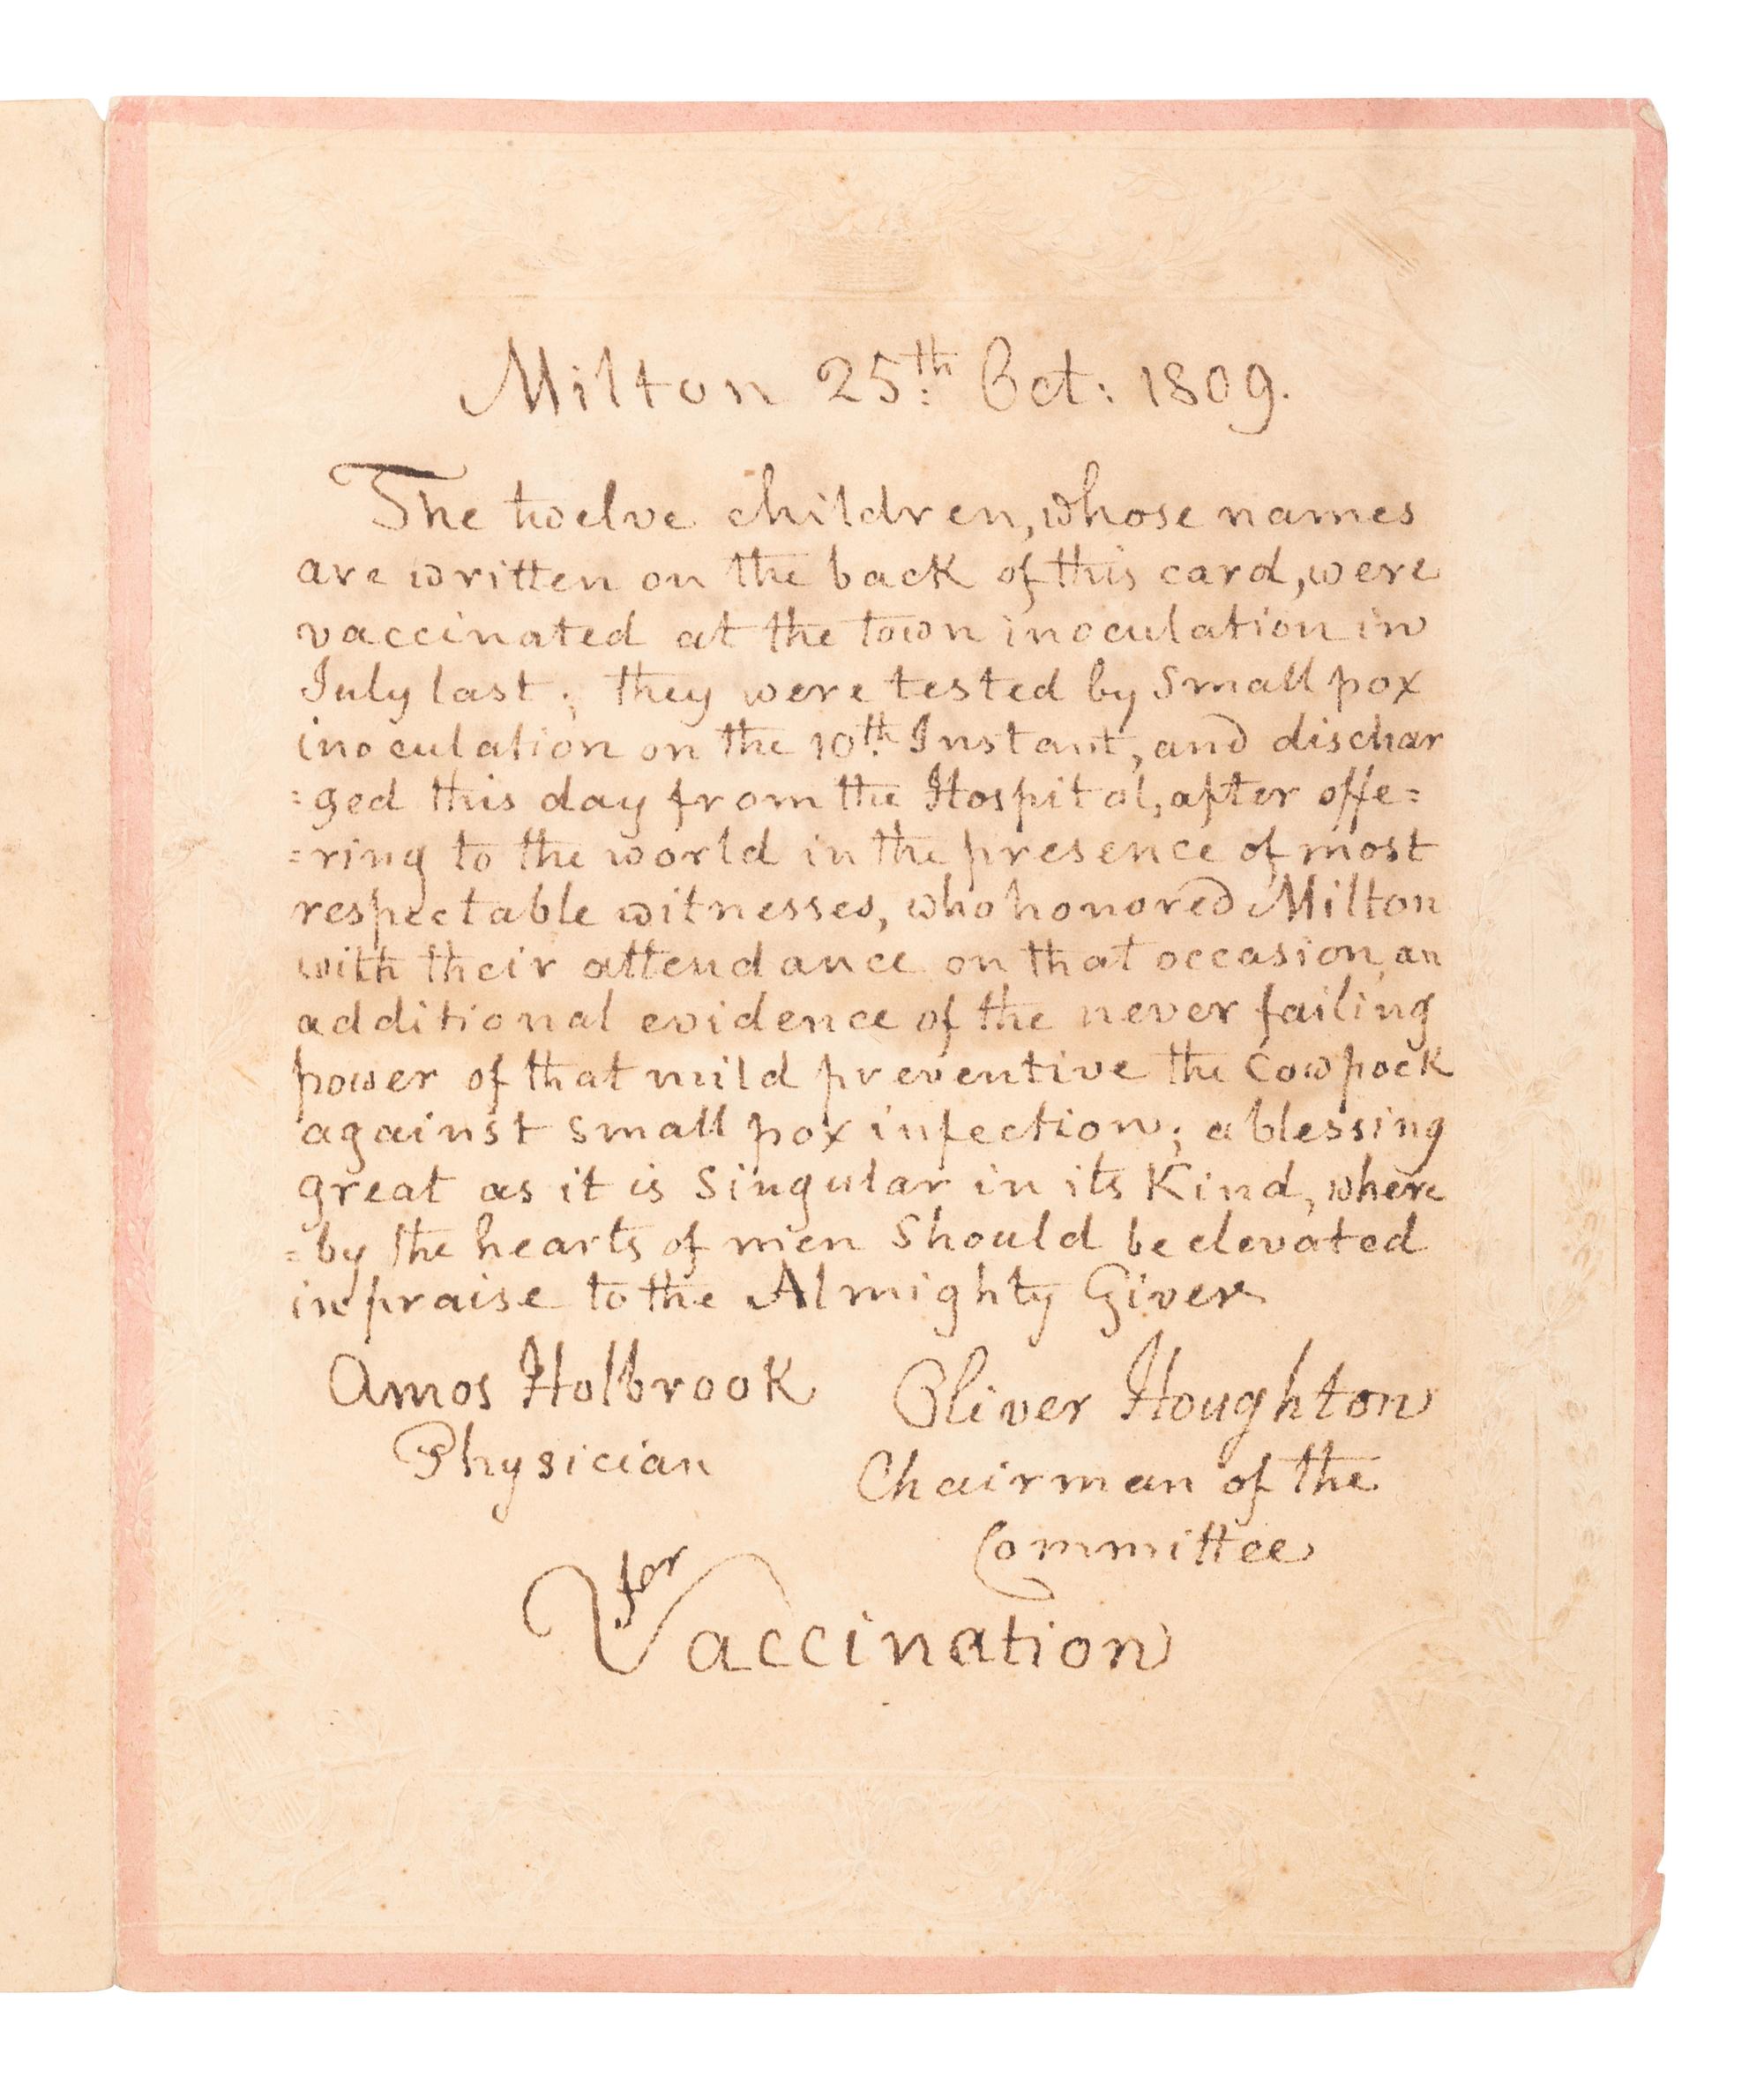 Milton 25th Oct: 1809.
The twelve children, whose names
are written on the back of this card, were
vaccinated at the town inoculation in
July last; they were tested by Small pox
inoculation on the 10th Instant, and dischar
=ged this day from the Hospital, after offe=
=ring to the world in the presence of most
respectable witnesses, who honored Milton
with their attendance on that occasion, an
additional evidence of the never failing
power of that mild preventive the Cowpock
against small pox infection; a blessing
great as it is Singular in its Kind, where
=by the hearts of men Should be elevated
in praise to the Almighty Giver
Amos Holbrook Oliver Houghton
Physician Chairman of the
Committee
for
Vaccination